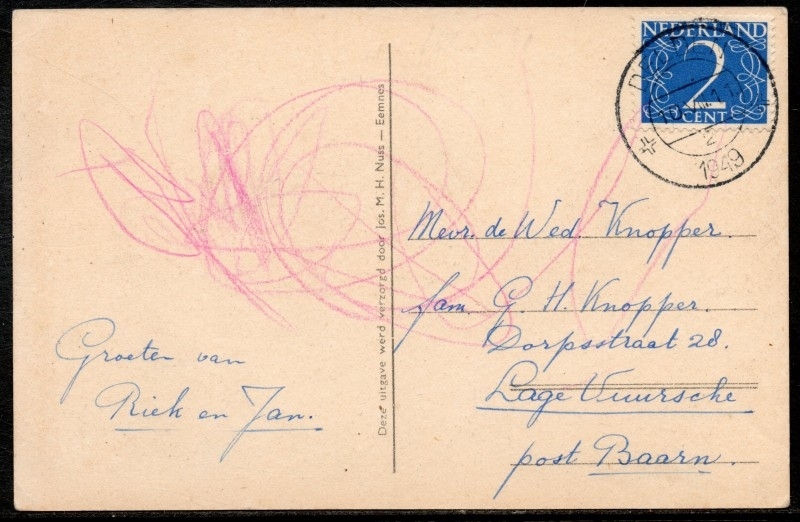 NEDERLAND
2
CENT
1949
Deze uitgave werd verzorgd door Jos. M. H. Nuss — Eemnes
Groeten van
Riek en Jan.
Mevr. de Wed. Knopper.
fam. G. H. Knopper.
Dorpsstraat 28.
Lage Vuursche
post Baarn.